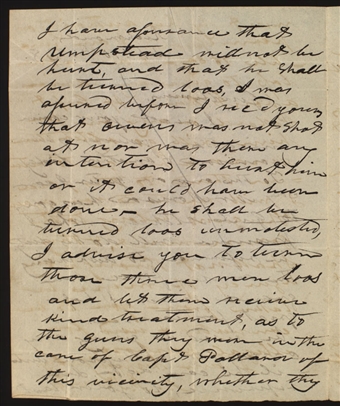 I have assurance that
Umpstead will not be
hurt, and that he shall
be turned loos, I was
assured before I rec'd yours
that Owens was not shot
at nor was there any
intention to hurt him
or it could have been
done, he shall be
turned loos unmolested,
I advise you to turn
those three men loos
and let them receive
kind treatment, as to
the guns they were in the
care of Capt of
this vicinity, whether they